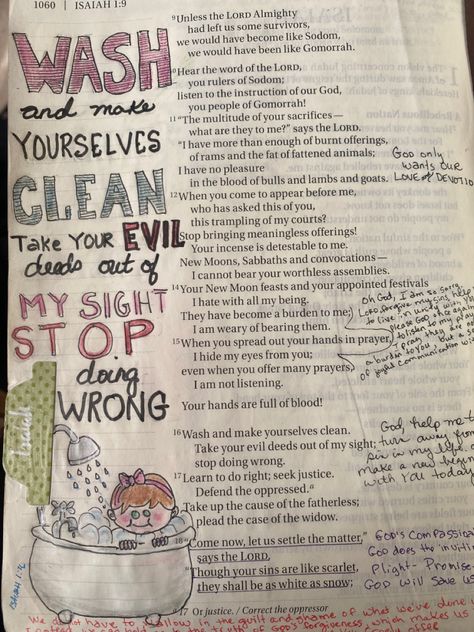 1060 | ISAIAH 1:9
WASH
and make
YOURSELVES
CLEAN
TAKE YOUR EVIL
deeds out of
MY SIGHT
STOP
doing
WRONG
Isaiah
ISAIAH 1:16
9Unless the LORD Almighty
had left us some survivors,
we would have become like Sodom,
we would have been like Gomorrah.
10Hear the word of the LORD,
you rulers of Sodom;
listen to the instruction of our God,
you people of Gomorrah!
11"The multitude of your sacrifices—
what are they to me?" says the LORD.
"I have more than enough of burnt offerings,
of rams and the fat of fattened animals;
I have no pleasure
in the blood of bulls and lambs and goats.
12When you come to appear before me,
who has asked this of you,
this trampling of my courts?
13Stop bringing meaningless offerings!
Your incense is detestable to me.
New Moons, Sabbaths and convocations—
I cannot bear your worthless assemblies.
14Your New Moon feasts and your appointed festivals
I hate with all my being.
They have become a burden to me;
I am weary of bearing them.
15When you spread out your hands in prayer,
I hide my eyes from you;
even when you offer many prayers,
I am not listening.
Your hands are full of blood!
16Wash and make yourselves clean.
Take your evil deeds out of my sight;
stop doing wrong.
17Learn to do right; seek justice.
Defend the oppressed.a
Take up the cause of the fatherless;
plead the case of the widow.
18"Come now, let us settle the matter,"
says the LORD.
"Though your sins are like scarlet,
they shall be as white as snow;
a17 Or justice. / Correct the oppressor
God only
wants our
LOVE & DEVOTIO
Oh God, I am so sorry
Lord forgive my sins, help
to live in unity with
please God once again
to listen to my pray
I pray they are
a burden to you, but a
of joyful communication wi
God, help me t
turn away from
sin in my life
make a new begin
with YOU today
GOD'S Compassi
God does the inviti
Plight - Promise
GOD will save us
We don't have to wallow in the guilt and shame of what we've done
of God's forgiveness, which makes us